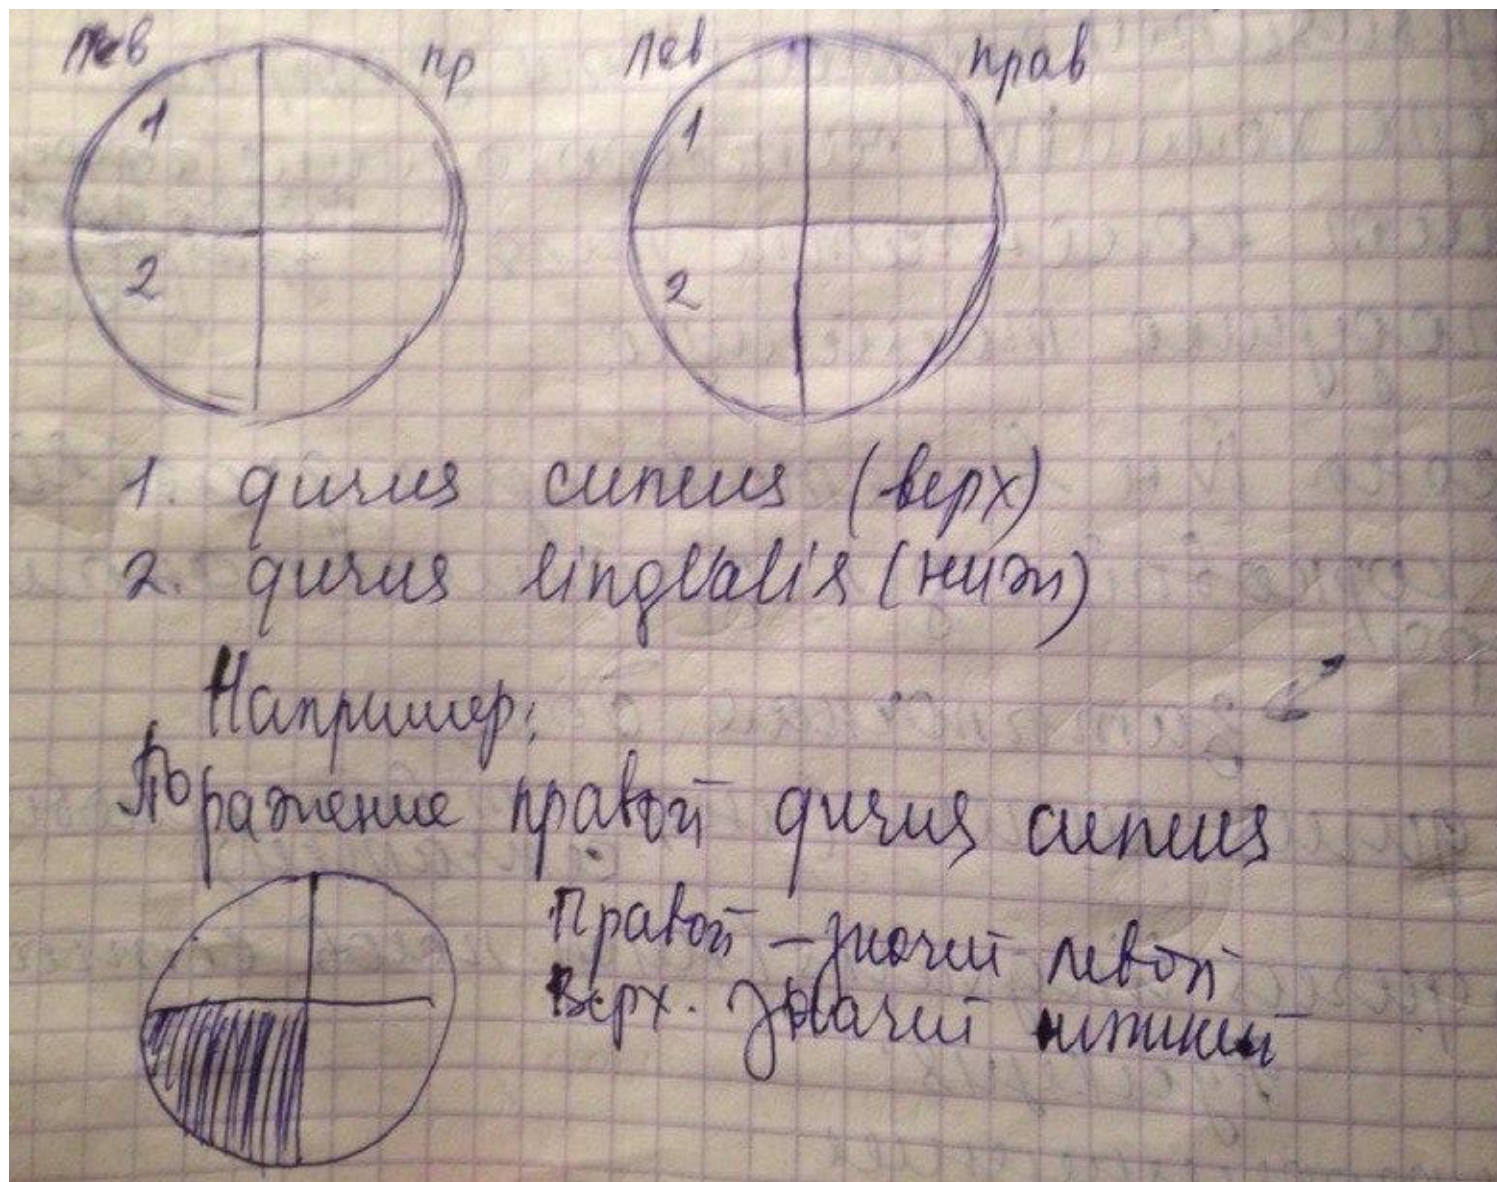 лев пр лев прав
1 1
2 2
1. girus cuneus (верх)
2. girus lingvalis (нижн)
Например:
Поражение правой girus cuneus
Правой – значит левой
Верх. значит нижний